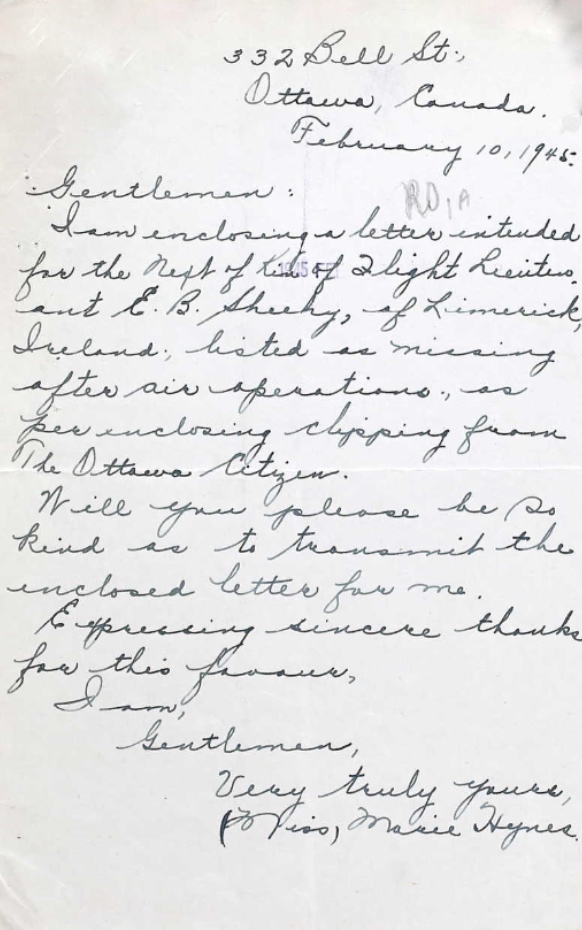 332 Bell St.,
Ottawa, Canada.
February 10, 1945.
Gentlemen:
I am enclosing a letter intended
for the Next of Kin of Flight Lieuten-
ant E. B. Sheehy, of Limerick,
Ireland, listed as missing
after air operations, as
per enclosing clipping from
The Ottawa Citizen.
Will you please be so
kind as to transmit the
enclosed letter for me.
Expressing sincere thanks
for this favour,
I am,
Gentlemen,
Very truly yours,
(Miss) Marie Hynes.